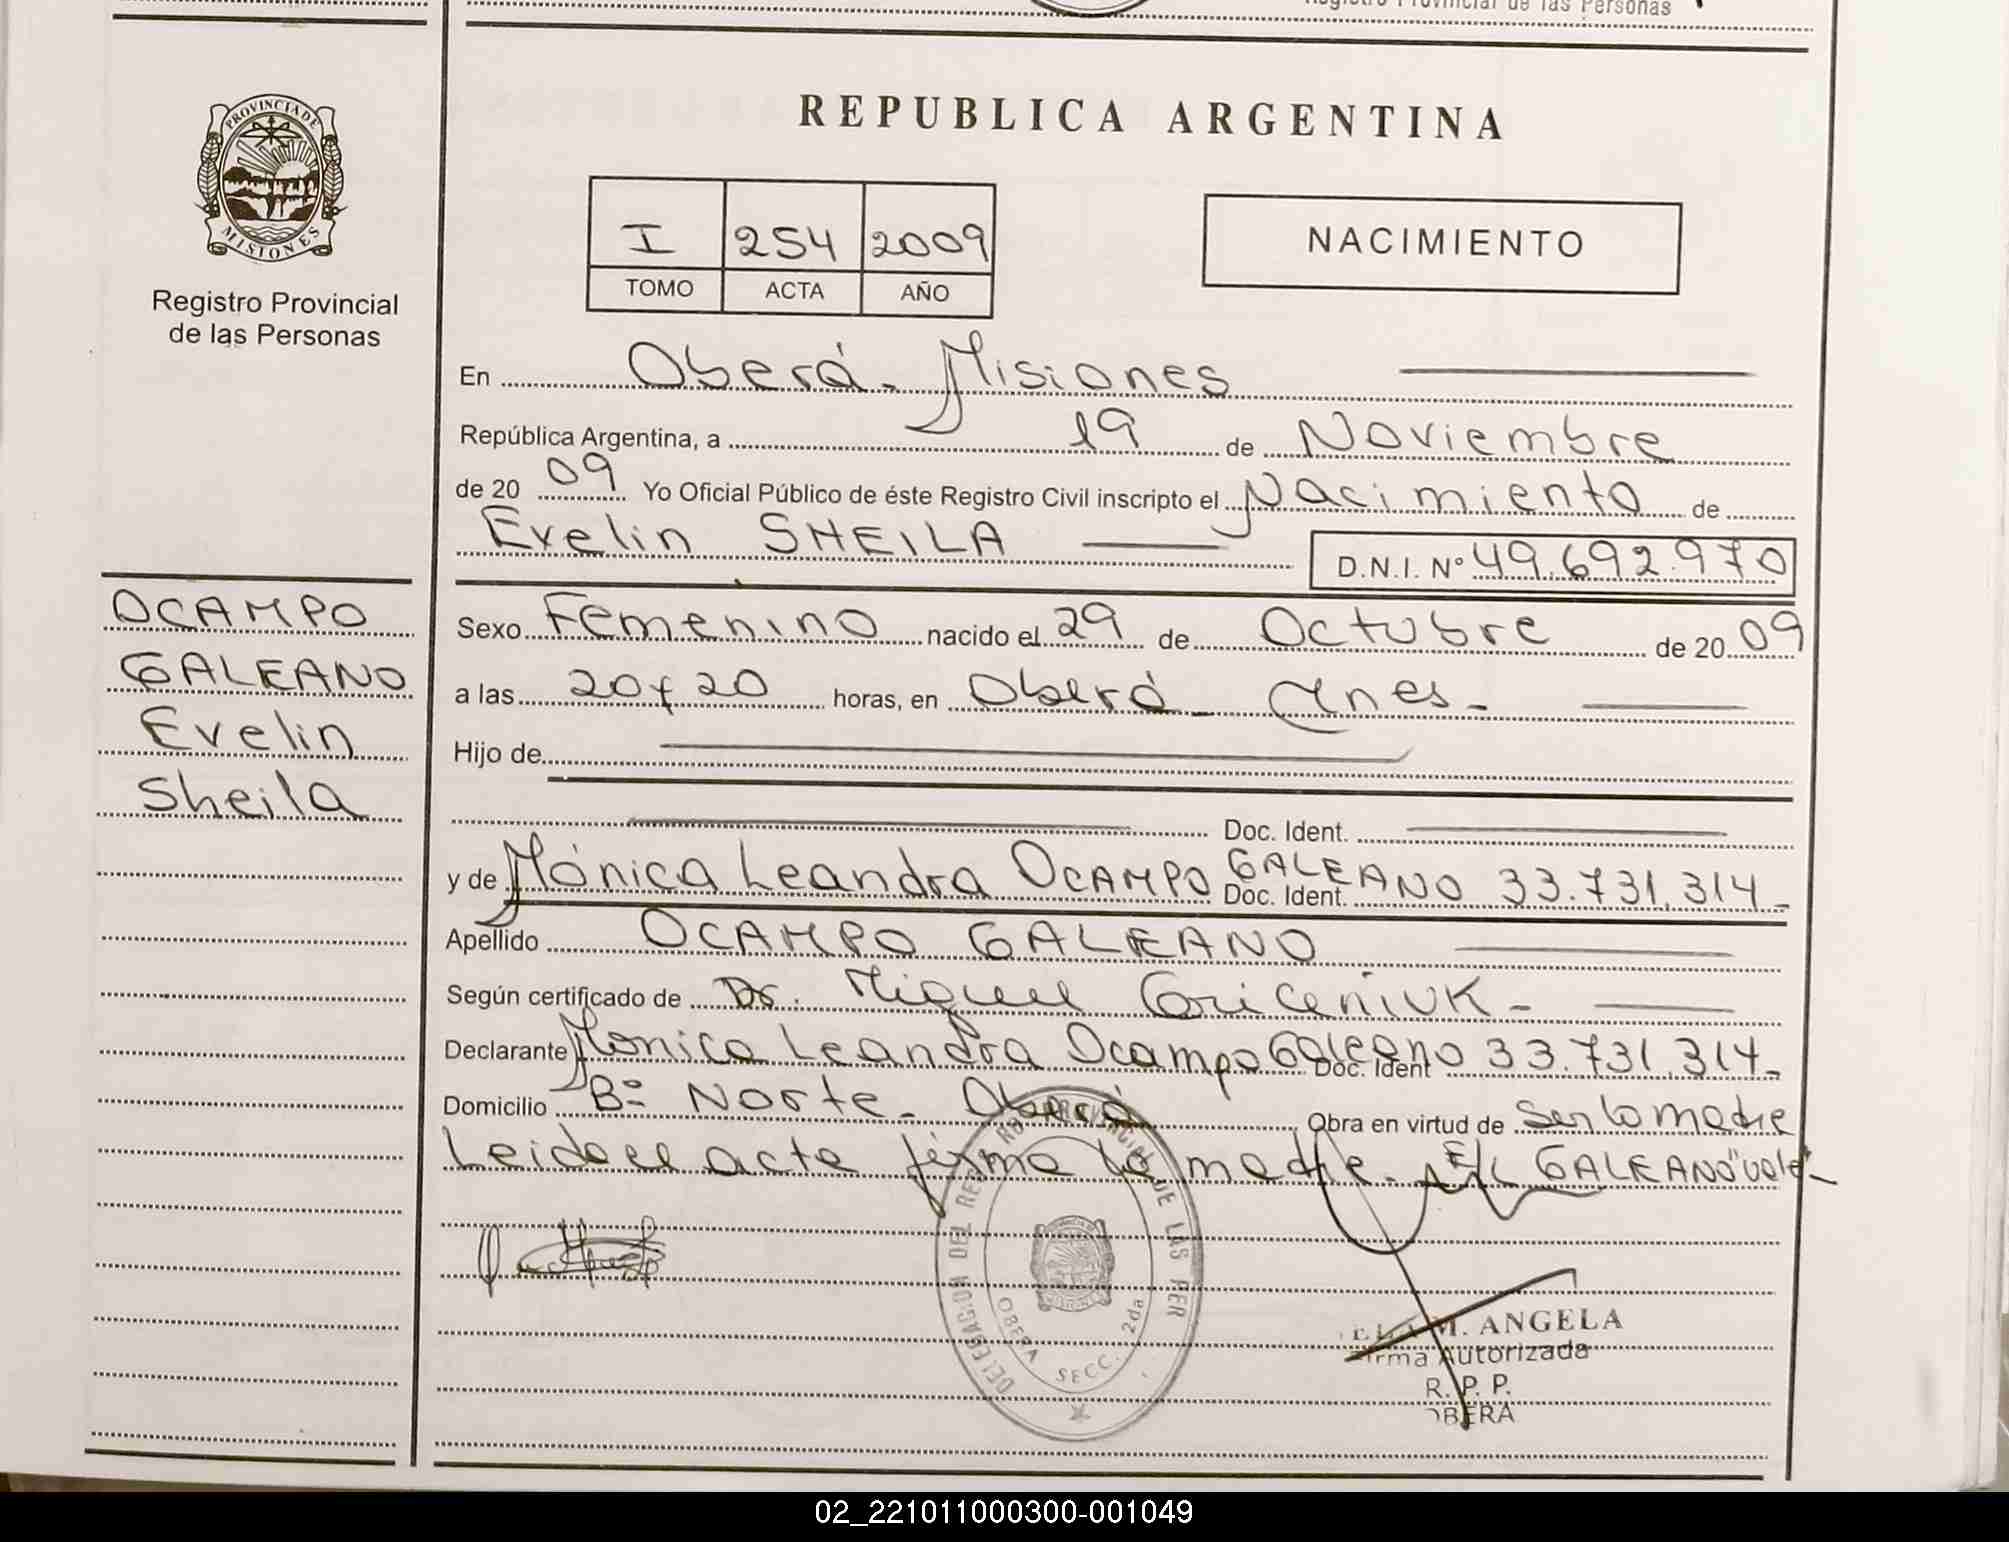 Registro Provincial de las Personas
PROVINCIA DE
MISIONES
Registro Provincial
de las Personas
REPUBLICA ARGENTINA
I 254 2009
TOMO ACTA AÑO
NACIMIENTO
En Oberá - Misiones
República Argentina, a 19 de Noviembre
de 20 09 Yo Oficial Público de éste Registro Civil inscripto el Nacimiento de
Evelin SHEILA
D.N.I. Nº 49.692.970
OCAMPO
GALEANO
Evelin
Sheila
Sexo Femenino nacido el 29 de Octubre de 20 09
a las 20 y 20 horas, en Oberá - Mnes -
Hijo de
Doc. Ident.
y de Mónica Leandra OCAMPO GALEANO Doc. Ident. 33.731.314-
Apellido OCAMPO GALEANO
Según certificado de Dr. Miguel Griceniuk -
Declarante Monica Leandra Ocampo Galeano Doc. Ident 33.731.314-
Domicilio Bº Norte - Oberá Obra en virtud de Ser la madre
Leida el acta firma la madre. E/L GALEANO "vale"-
DELEGACION DEL REG PROVINCIAL DE LAS PER
OBERA SECC. 2da
M. ANGELA
Firma Autorizada
R. P. P.
OBERA
02_221011000300-001049